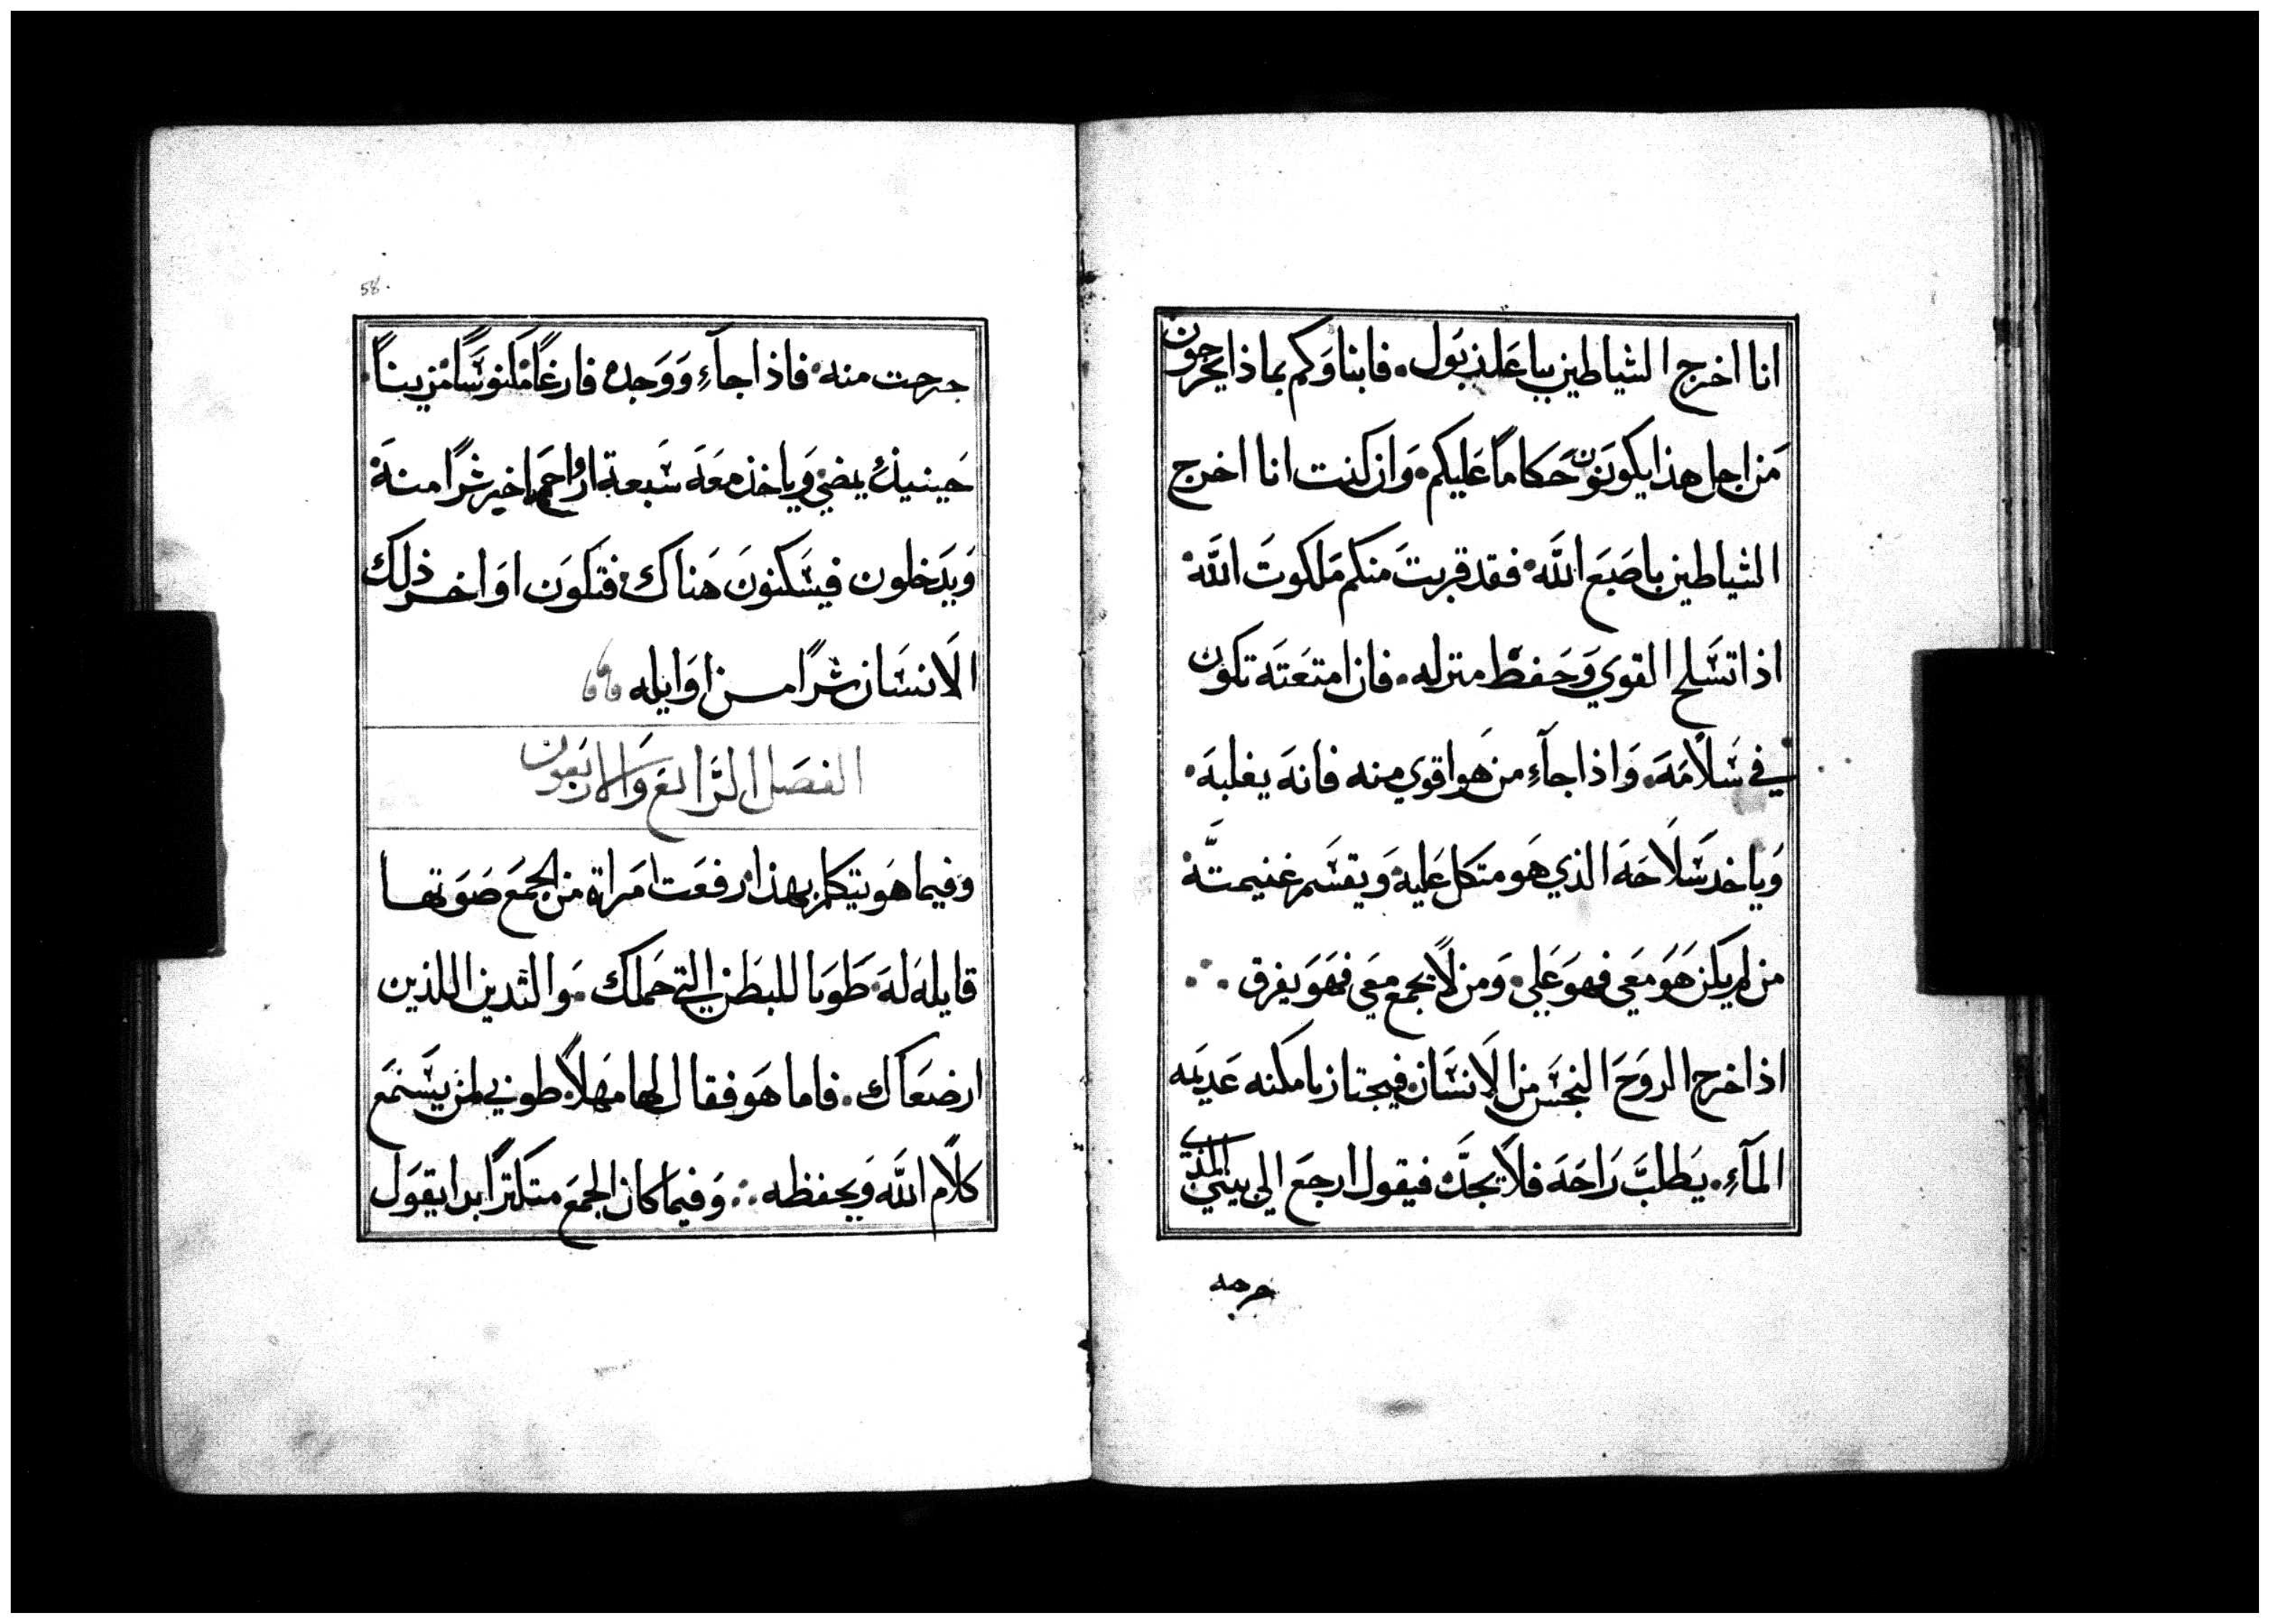 انا اخرج الشياطين بباعلذبول. فابناوكم بماذا يخرجون
من اجل هذا يكونون حكاما عليكم. وان كنت انا اخرج
الشياطين باصبع الله. فقد قربت منكم ملكوت الله.
اذا تسلح القوي وحفظ منزله. فان امتعته تكون
في سلامه. واذا جآء من هو اقوي منه فانه يغلبه.
وياخد سلاحه الذي هو متكل عليه. ويقسم غنيمته
من لم يكن هو معي فهو علي. ومن لا يجمع معي فهو يفرق
اذا خرج الروح النجس من الانسان. فيجتاز بامكنه عديمه
المآء. يطلب راحه فلا يجد. فيقول ارجع الي بيتي الذي
خرجت
58.
خرجت منه. فاذا جآء ووجده فارغا مكنوسا مزينا.
حينيذ يمضي وياخذ معه سبعة ارواح اخر شرا منه
ويدخلون فيسكنون هناك. فتكون اواخر ذلك
الانسان شرا من اوايله
الفصل الرابع والاربعون
وفيما هو يتكلم بهذا. رفعت امراة من الجمع صوتها
قايله له. طوبا للبطن التي حملك. والثدين اللذين
ارضعاك. فاما هو فقال لها مهلا. طوبي لمن يستمع
كلام الله ويحفظه. وفيما كان الجمع متكترا بدا يقول